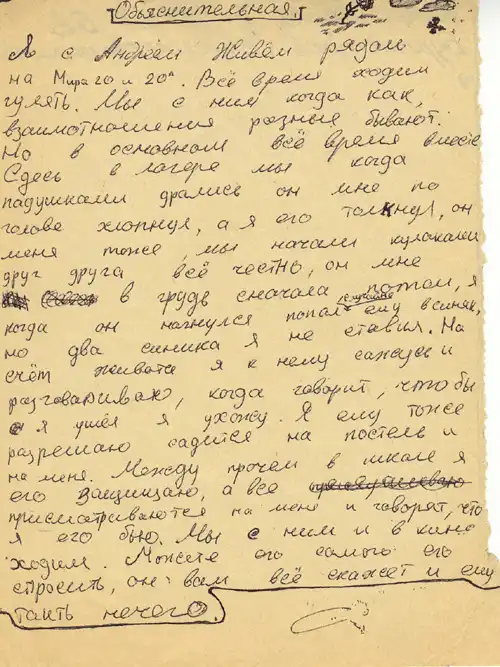 Объяснительная.
Я с Андреем живём рядом
на Мира 20 и 20ᴬ. Всё время ходим
гулять. Мы с ним когда как,
взаимотношения разные бывают.
Но в основном всё время вместе
Сдесь в лагере мы когда
падушками дрались он мне по
голове хлопнул, а я его толкнул, он
меня тоже, мы начали кулоками
друг друга всё честно, он мне
в грудь сначала потом, я
когда он нагнулся попал случайно ему в синяк,
но два синика я не ставил. На
счёт живота я к нему сажусь и
разговариваю, когда говорит, чтобы
я ушёл я ухожу. Я ему тоже
разрешаю садится на постель и
на меня. Между прочем в школе я
его защищаю, а все
присматриваются на меня и говорят, что
я его бью. Мы с ним и в кино
ходим. Можете его самого его
спросить, он вам всё скажет и ему
таить нечего.